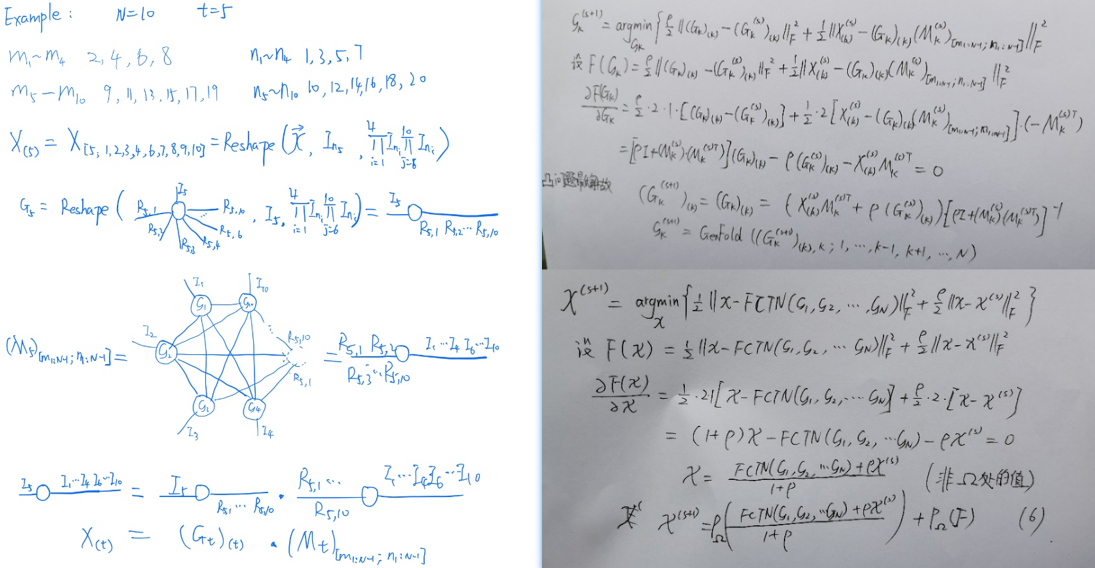 Example: N=10 t=5
m₁~m₄ 2, 4, 6, 8 n₁~n₄ 1, 3, 5, 7
m₅~m₁₀ 9, 11, 13, 15, 17, 19 n₅~n₁₀ 10, 12, 14, 16, 18, 20
X₍₅₎ = X_[5, 1, 2, 3, 4, 6, 7, 8, 9, 10] = Reshape(𝒳, I_{n₅}, ∏_{i=1}^{4} I_{n_i} ∏_{j=6}^{10} I_{n_i})
I₅
G₅ = Reshape( R₅,₁ R₅,₂ R₅,₃ R₅,₄ R₅,₆ ... R₅,₁₀ , I₅, ∏_{i=1}^{4} I_{n_i} ∏_{j=6}^{10} I_{n_i}) = I₅ R₅,₁ R₅,₂ ... R₅,₁₀
I₁ I₁₀
G₁
I₂ G₂ R₅,₁₀
(M₅)_[m₁:N-1; n₁:N-1] = = R₅,₁ R₅,₂ I₁...I₄ I₆...I₁₀
R₅,₁ R₅,₃...R₅,₁₀
G₄
I₃ I₄
I₅ I₁...I₄ I₆...I₁₀ = I₅ R₅,₁ ... R₅,₁₀ · R₅,₁... R₅,₁₀ I₁...I₄I₆...I₁₀
X₍t₎ = (Gt)₍t₎ · (Mt)_[m₁:N-1; n₁:N-1]
G_k^(s+1) = argmin_{G_k} {ρ/2 ||(G_k)_(k) - (G_k^(s))_(k)||_F^2 + 1/2 ||X_(k)^(s) - (G_k)_(k) (M_k^(s))_[m₁:N-1; n₁:N-1]||_F^2
设 F(G_k) = ρ/2 ||(G_k)_(k) - (G_k^(s))_(k)||_F^2 + 1/2 ||X_(k)^(s) - (G_k)_(k) (M_k^(s))_[m₁:N-1; n₁:N-1]||_F^2
∂F(G_k)/∂G_k = ρ/2 · 2 · 1 · [(G_k)_(k) - (G_k^(s))_(k)] + 1/2 · 2 [X_(k)^(s) - (G_k)_(k) (M_k^(s))_[m₁:N-1; n₁:N-1]] · (-M_k^(s)T)
= [ρI + (M_k^(s)) · (M_k^(s)T)] (G_k)_(k) - ρ(G_k^(s))_(k) - X_(k)^(s) M_k^(s)T = 0
凸问题
(G_k^(s+1))_(k) = (G_k)_(k) = (X_(k)^(s) M_k^(s)T + ρ(G_k^(s))_(k)) [ρI + (M_k^(s)) (M_k^(s)T)]^-1
G_k^(s+1) = GenFold((G_k^(s+1))_(k), k; 1, ..., k-1, k+1, ..., N)
𝒳^(s+1) = argmin_𝒳 {1/2 ||𝒳 - FCTN(G₁, G₂, ..., G_N)||_F^2 + ρ/2 ||𝒳 - 𝒳^(s)||_F^2}
设 F(𝒳) = 1/2 ||𝒳 - FCTN(G₁, G₂, ... G_N)||_F^2 + ρ/2 ||𝒳 - 𝒳^(s)||_F^2
∂F(𝒳)/∂𝒳 = 1/2 · 2·1 [𝒳 - FCTN(G₁, G₂, ... G_N)] + ρ/2 · 2 · [𝒳 - 𝒳^(s)]
= (1+ρ)𝒳 - FCTN(G₁, G₂, ... G_N) - ρ𝒳^(s) = 0
𝒳 = (FCTN(G₁, G₂, ... G_N) + ρ𝒳^(s))/(1+ρ) (非Ω处的值)
𝒳^(s+1) = P_Ω((FCTN(G₁, G₂, ... G_N) + ρ𝒳^(s))/(1+ρ)) + P_Ω(F) (6)